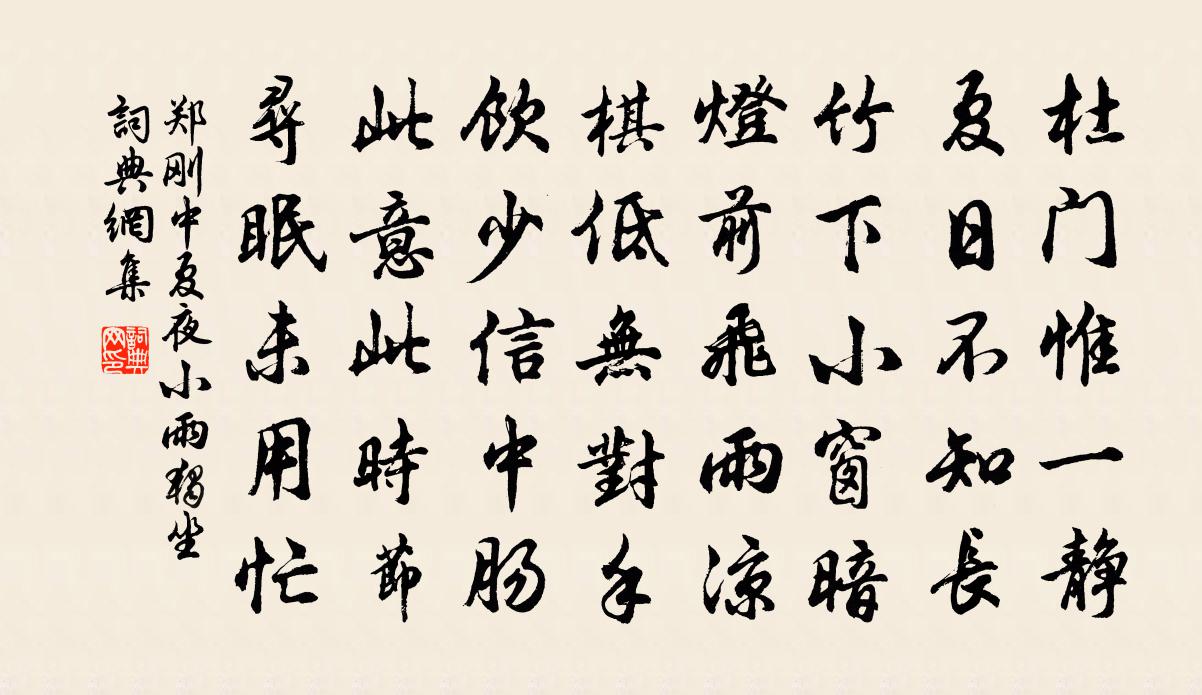 杜门惟一静
夏日不知長
竹下小窗暗
燈前飛雨凉
棋低無對手
飲少信中肠
此意此時節
尋眠未用忙
郑刚中夏夜小雨獨坐
詞典網集
詞典網印